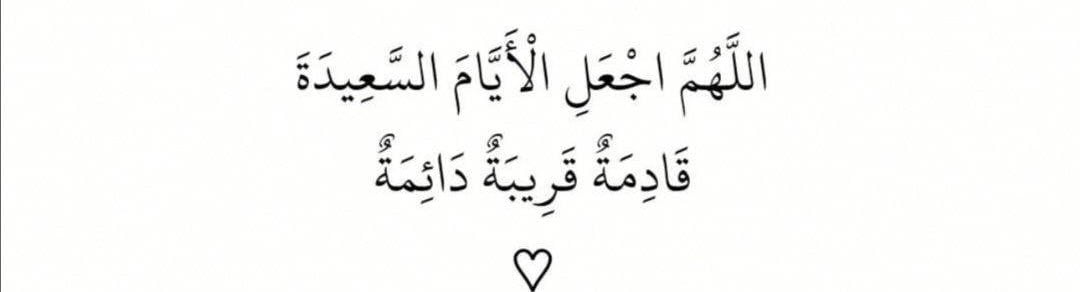 اللَّهُمَّ اجْعَلِ الْأَيَّامَ السَّعِيدَةَ
قَادِمَةٌ قَرِيبَةٌ دَائِمَةٌ
♡